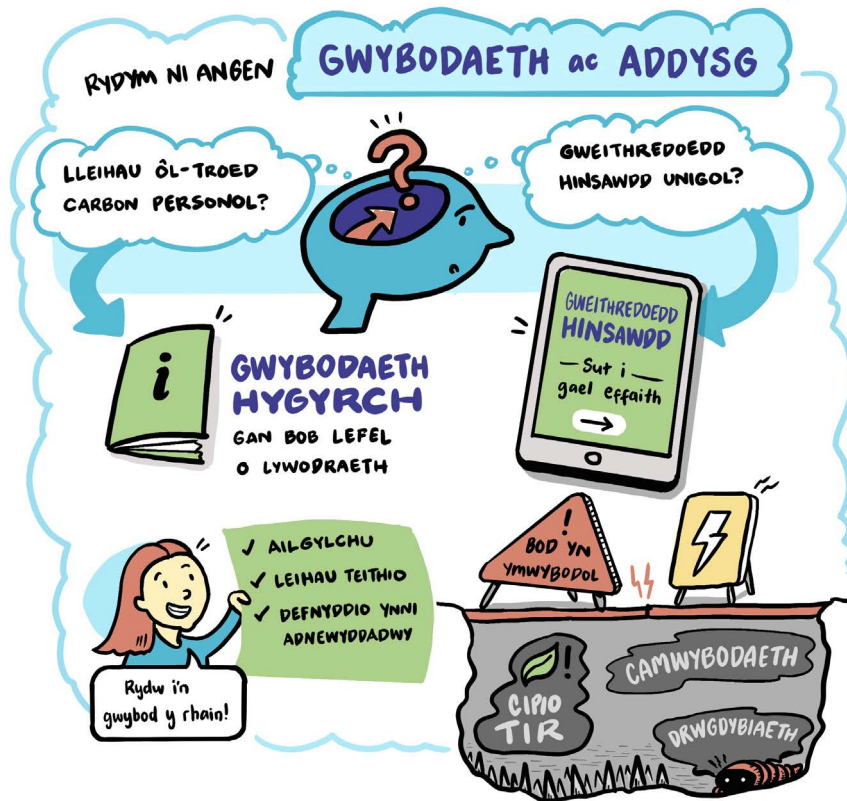 RYDYM NI ANGEN
GWYBODAETH ac ADDYSG
LLEIHAU ÔL-TROED
CARBON PERSONOL?
GWEITHREDOEDD
HINSAWDD UNIGOL?
?
i
GWYBODAETH
HYGYRCH
GAN BOB LEFEL
O LYWODRAETH
GWEITHREDOEDD
HINSAWDD
— Sut i —
gael effaith
✓ AILGYLCHU
✓ LEIHAU TEITHIO
✓ DEFNYDDIO YNNI
ADNEWYDDADWY
Rydw i'n
gwybod y rhain!
!
BOD YN
YMWYBODOL
!
CIPIO
TIR
CAMWYBODAETH
DRWGDYBIAETH